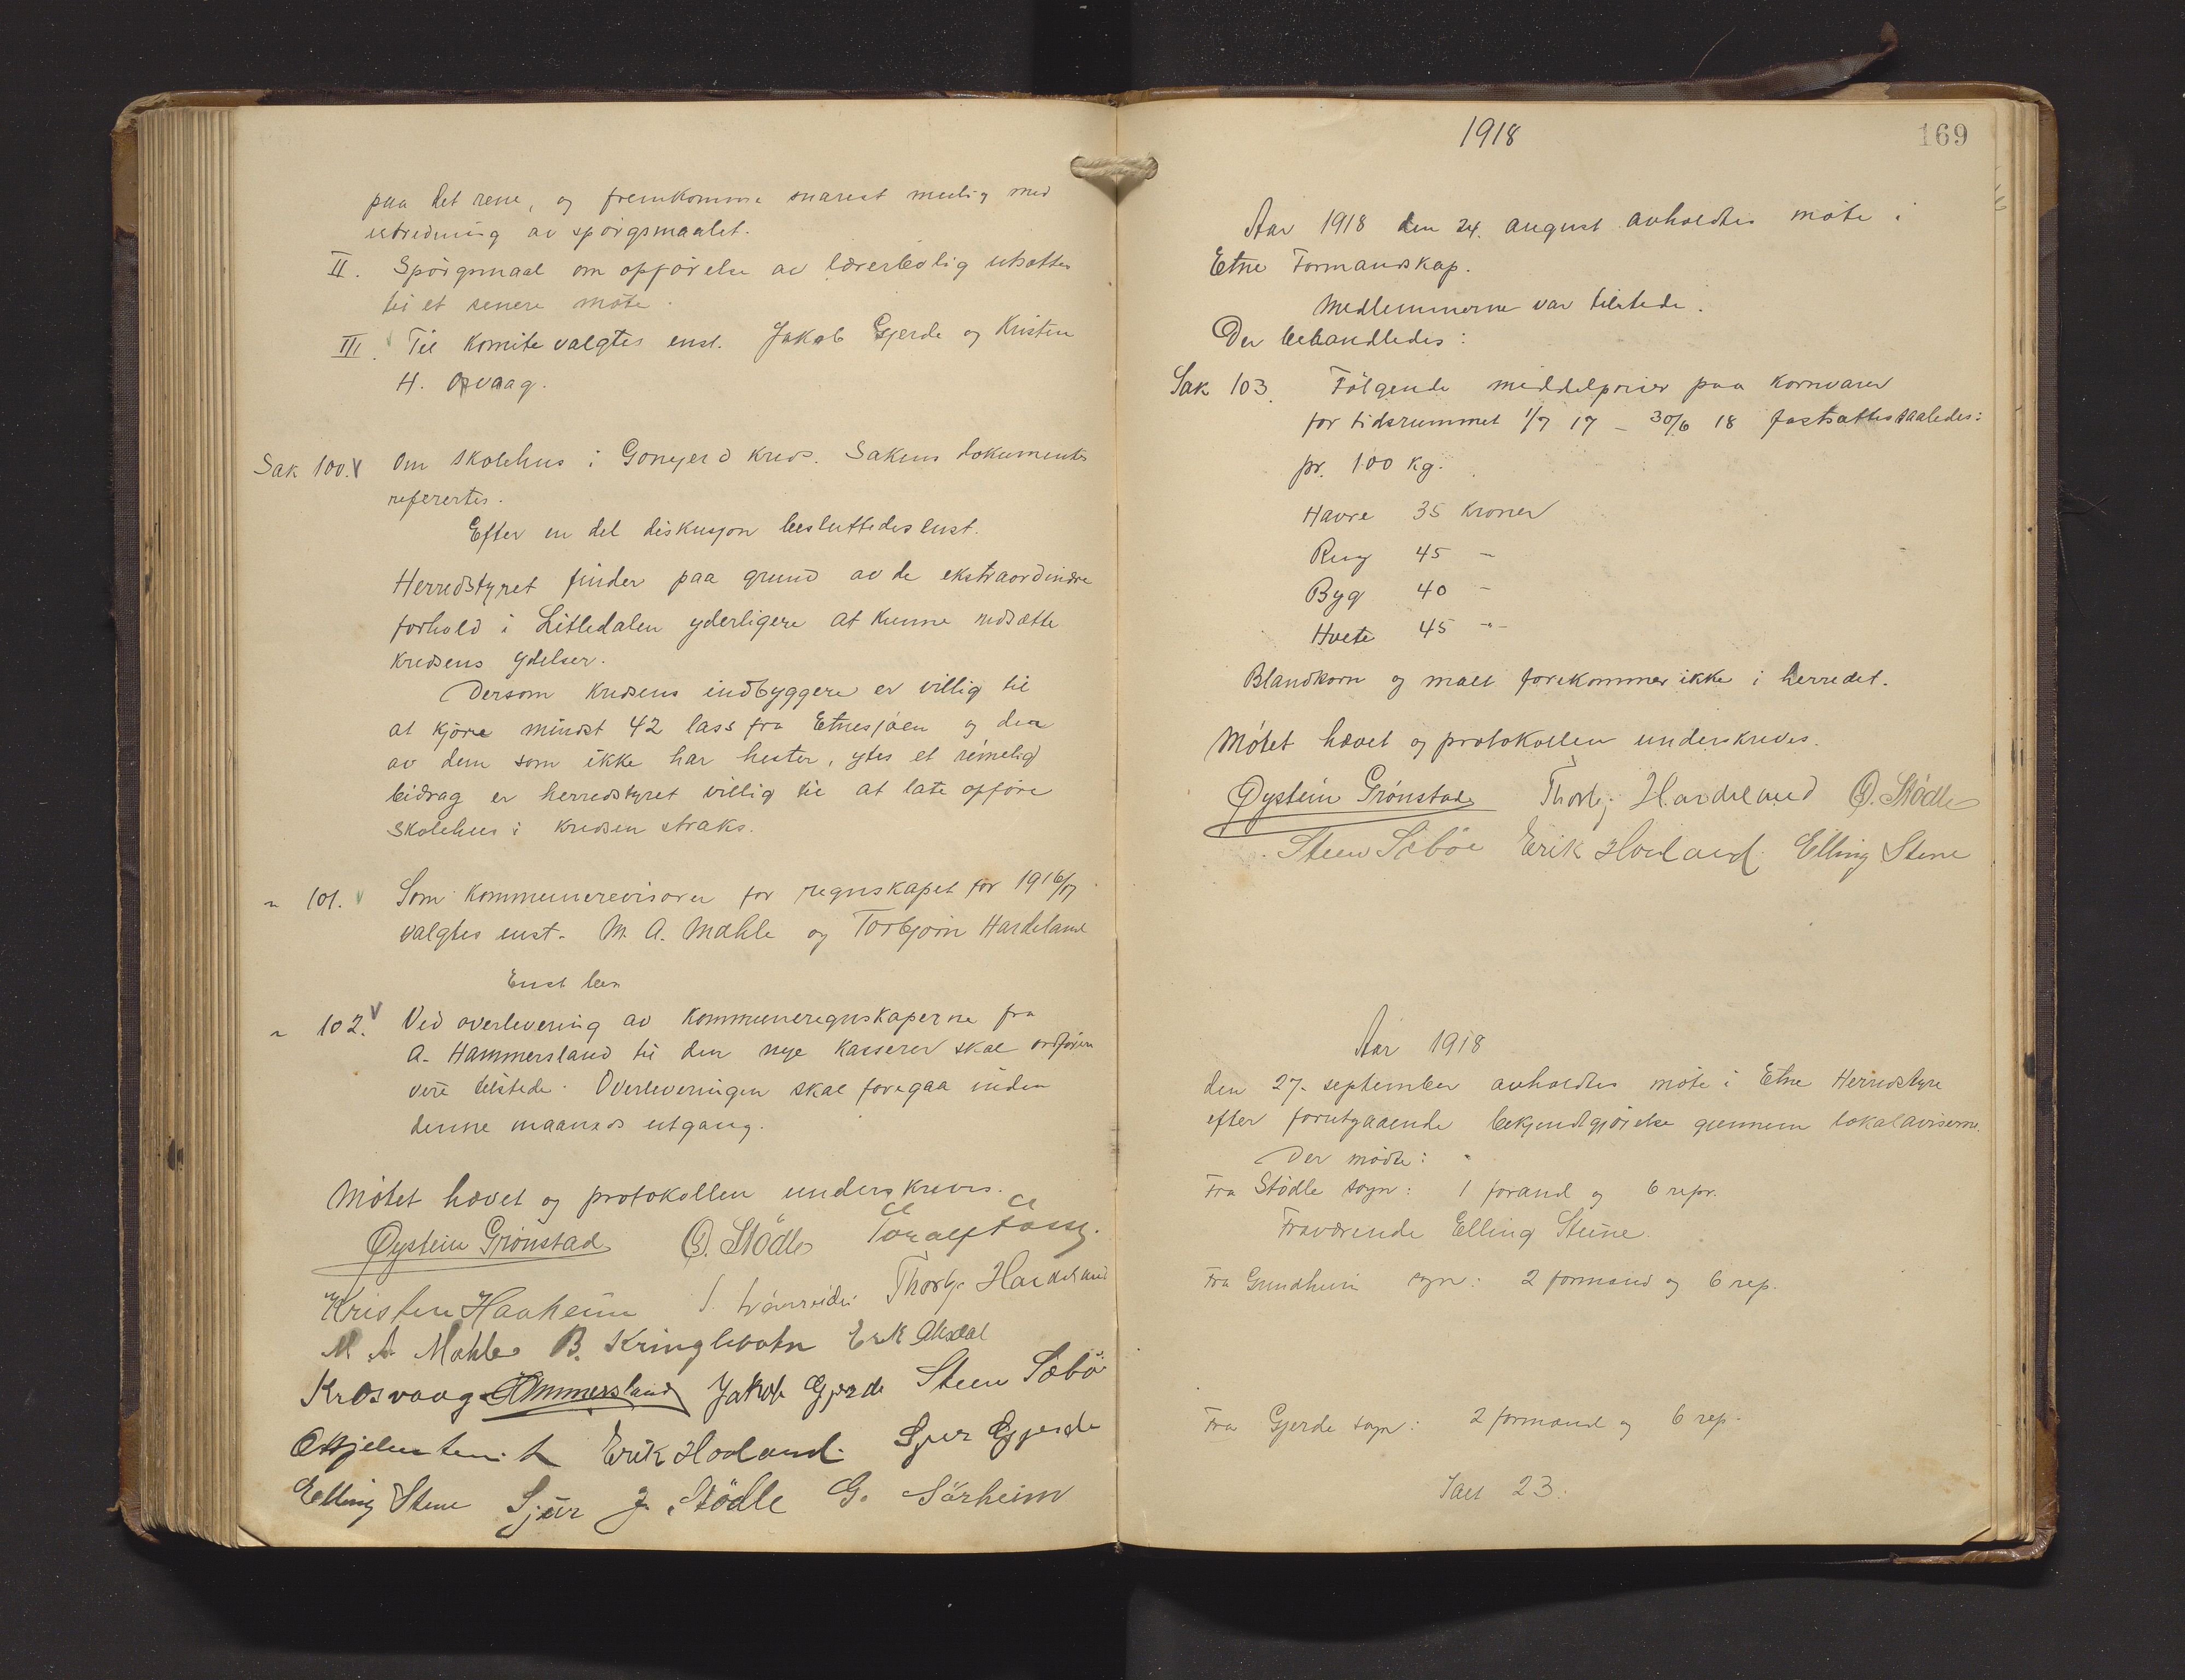 paa det rene, og fremkomme snarest mulig med
utredning av spörgsmaalet.
II. Spörgsmaal om opförelse av lærerbolig utsættes
til et senere møte.
III. Til komite valgtes enst. Jakob Gjerde og Kristen
H. Osvaag.
Sak 100. Om skolehus i kreds. Sakens dokumenter
refertes.
Efter en del diskusjon besluttedes enst.
Herredstyret finder paa grund av de ekstraordinære
forhold i Litledalen yderligere at kunne nedsætte
kredsens ydelser.
Dersom kredsens indbyggere er villig til
at kjöre mindst 42 lass fra Etnesjöen og der
av dem som ikke har hester, ytes et rimelig
bidrag er herredstyret villig til at late opföre
skolehus i kredsen straks.
" 101. Som kommunerevisorer for regnskapet for 1916/17
valgtes enst. M. A. Mæhle og Torbjörn Hardeland
Enst bes
" 102. Ved overlevering av kommuneregnskaperne fra
A. Hammersland til den nye kasserer skal ordföreren
være tilstede. Overleveringen skal foregaa inden
denne maaneds utgang.
Mötet hævet og protokollen underskreves.
Øystein Grönstad O. Stödle Toralf Fosse.
Kristen Haaheim Thorbj. Hardeland
M. A. Mæhle B. Kringlebotn Erik
Kr Osvaag Jakob Gjerde Steen Sæbö
Erik Hovland Sjur Gjerde
Elling Stene Sjur J. Stödle G. Sörheim
1918
169
Aar 1918 den 24. august avholdtes möte i
Etne Formandskap.
Medlemmerne var tilstede.
Der behandledes:
Sak 103. Fölgende middelpriser paa kornvarer
for tidsrummet 1/7 17 – 30/6 18 fastsattes saaledes:
pr. 100 kg.
Havre 35 kroner
Rug 45 –
Byg 40 –
Hvete 45 –"–
Blandkorn og malt forekommer ikke i herredet.
Mötet hævet og protokollen underskreves.
Øystein Grönstad Thorbj. Hardeland O. Stödle
Steen Sæböe Erik Hovland Elling Stene
Aar 1918
den 27. september avholdtes möte i Etne Herredstyre
efter forutgaaende bekjendtgjörelse gjennem lokalaviserne.
Der mödte:
Fra Stödle sogn: 1 formand og 6 repr.
Fraværende Elling Steine.
Fra Grindheim sogn: 2 formænd og 6 rep.
Fra Gjerde sogn: 2 formænd og 6 rep.
Ialt 23.